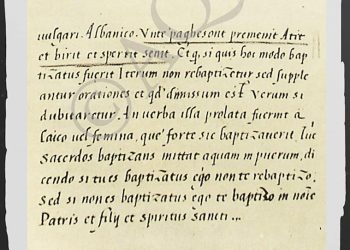 vulgari. Albanico. Vnte paghesont premenit Atit
et birit et spertit senit. Et q, si quis hoc modo bap
tizatus fuerit Iterum non rebaptizetur sed supple
antur orationes et qd dimissum est. Verum si
dubitaretur. An verba illa prolata fuerint à
laico vel femina, que forte sic baptizaverit. Tuc
sacerdos baptizans mittat aquam in puerum, di
cendo si tu es baptizatus ego non te rebaptizo,
sed si non es baptizatus ego te baptizo in noie
Patris et filij et spiritus sancti ...